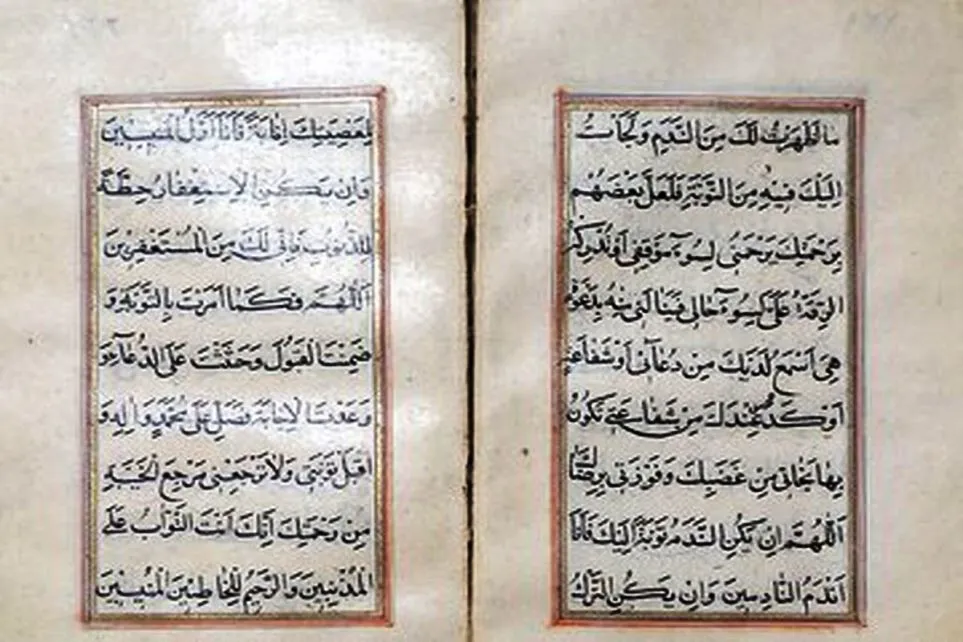 ما أظهرت لك من الندم ولجأت
إليك فيه من التوبة فلعل بعضهم
برحمتك يرحمني لسوء موقفي أو تدركه
الرقة علي لسوء حالي فينالني منه بدعوة
هي أسمع لديك من دعائي أو شفاعة
أوكد عندك من شفاعتي تكون
بها نجاتي من غضبك وفوزتي برضاك
اللهم إن يكن الندم توبة إليك فأنا
أندم النادمين وإن يكن الترك
لمعصيتك إنابة فأنا أول المنيبين
وإن يكن الاستغفار حطة
للذنوب فإني لك من المستغفرين
اللهم فكما أمرت بالتوبة و
ضمنت القبول وحثثت على الدعاء و
وعدت الإجابة فصل على محمد وآله و
اقبل توبتي ولا ترجعني مرجع الخيبة
من رحمتك إنك أنت التواب على
المذنبين والرحيم للخاطئين المنيبين